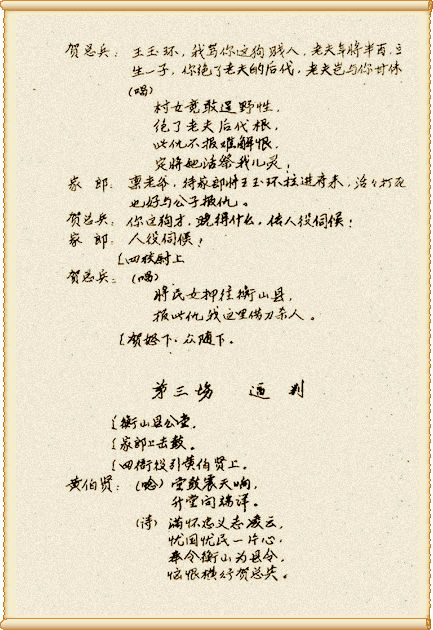 贺总兵：王玉环，我骂你这狗贱人，老夫年将半百，只
生一子，你绝了老夫的后代，老夫岂与你甘休
(唱)
村女竟敢逞野性，
绝了老夫后代根，
此仇不报难解恨，
定将她活祭我儿灵！
家郎：禀老爷，待家郎将王玉环拉进府来，活活打死
也好与公子报仇。
贺总兵：你这狗才，晓得什么，传人役伺候！
家郎：人役伺候！
〔四校尉上
贺总兵：(唱)
将民女押往衡山县，
报此仇我这里借刀杀人。
〔贺怒下、众随下。
第三场 逼判
〔衡山县公堂。
〔家郎上击鼓。
〔四衙役引黄伯贤上。
黄伯贤：(念)堂鼓震天响，
升堂问端详。
(诗)满怀忠义志凌云，
忧国忧民一片心，
奉令衡山为县令，
恼恨横行贺总兵。